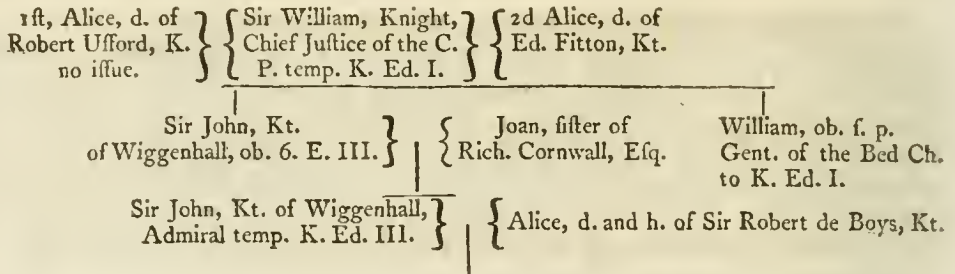 1ſt, Alice, d. of
Robert Ufford, K.
no iſſue.
Sir William, Knight,
Chief Juſtice of the C.
P. temp. K. Ed. I.
2d Alice, d. of
Ed. Fitton, Kt.
Sir John, Kt.
of Wiggenhall, ob. 6. E. III.
Joan, ſiſter of
Rich. Cornwall, Eſq.
William, ob. ſ. p.
Gent. of the Bed Ch.
to K. Ed. I.
Sir John, Kt. of Wiggenhall,
Admiral temp. K. Ed. III.
Alice, d. and h. of Sir Robert de Boys, Kt.